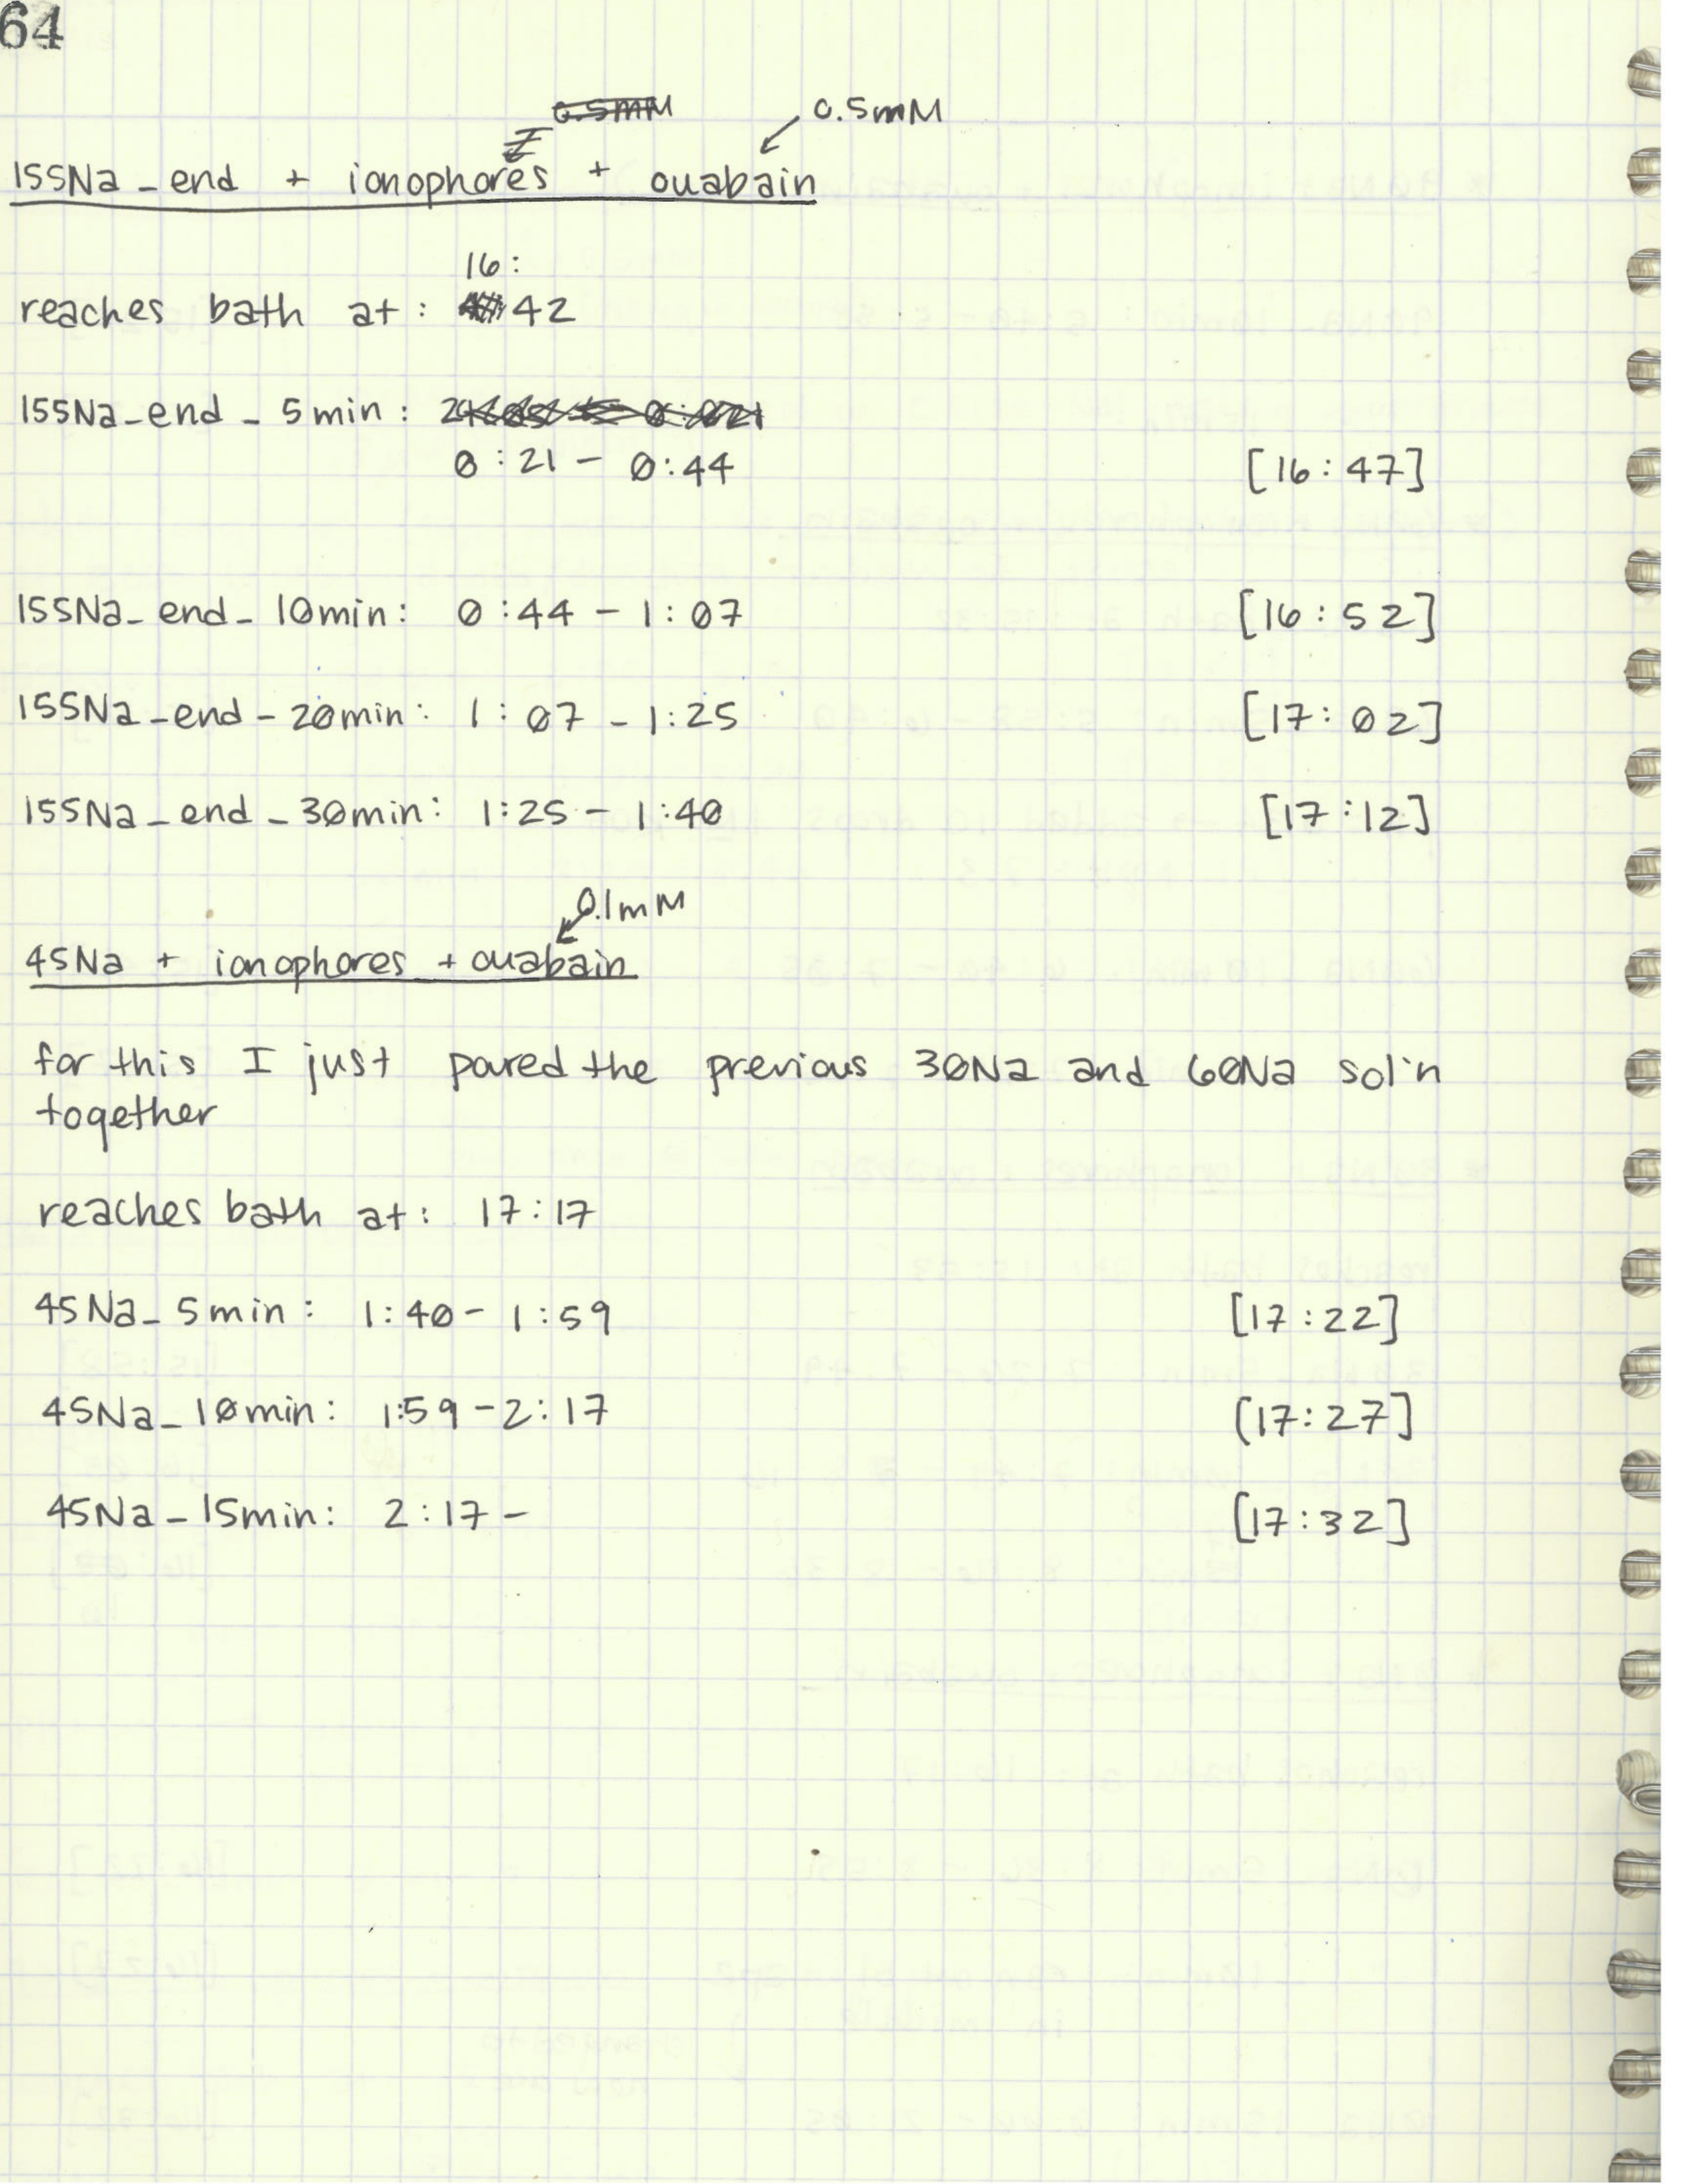 64
0.5mM 0.5mM
155Na_end + ionophores + ouabain
16:
reaches bath at: 42
155Na_end_5min:
0:21 - 0:44 [16:47]
155Na_end_10min: 0:44 - 1:07 [16:52]
155Na_end_20min: 1:07 - 1:25 [17:02]
155Na_end_30min: 1:25 - 1:40 [17:12]
0.1mM
45Na + ionophores + ouabain
for this I just poured the previous 30Na and 60Na sol'n
together
reaches bath at: 17:17
45Na_5min: 1:40 - 1:59 [17:22]
45Na_10min: 1:59 - 2:17 [17:27]
45Na_15min: 2:17 - [17:32]